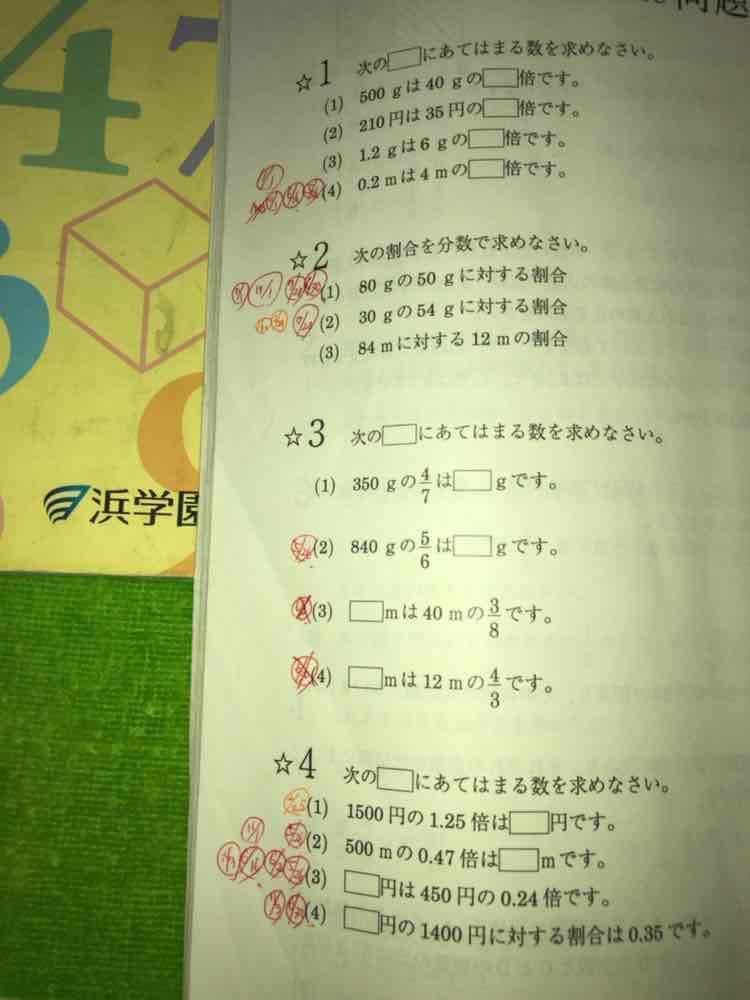 問題
☆1 次の□にあてはまる数を求めなさい。
(1) 500 gは40 gの□倍です。
(2) 210円は35円の□倍です。
(3) 1.2 gは6 gの□倍です。
(4) 0.2 mは4 mの□倍です。
☆2 次の割合を分数で求めなさい。
(1) 80 gの50 gに対する割合
(2) 30 gの54 gに対する割合
(3) 84 mに対する12 mの割合
☆3 次の□にあてはまる数を求めなさい。
(1) 350 gの4/7は□gです。
(2) 840 gの5/6は□gです。
(3) □mは40 mの3/8です。
(4) □mは12 mの4/3です。
☆4 次の□にあてはまる数を求めなさい。
(1) 1500円の1.25倍は□円です。
(2) 500 mの0.47倍は□mです。
(3) □円は450円の0.24倍です。
(4) □円の1400円に対する割合は0.35です。
47
9
浜学園